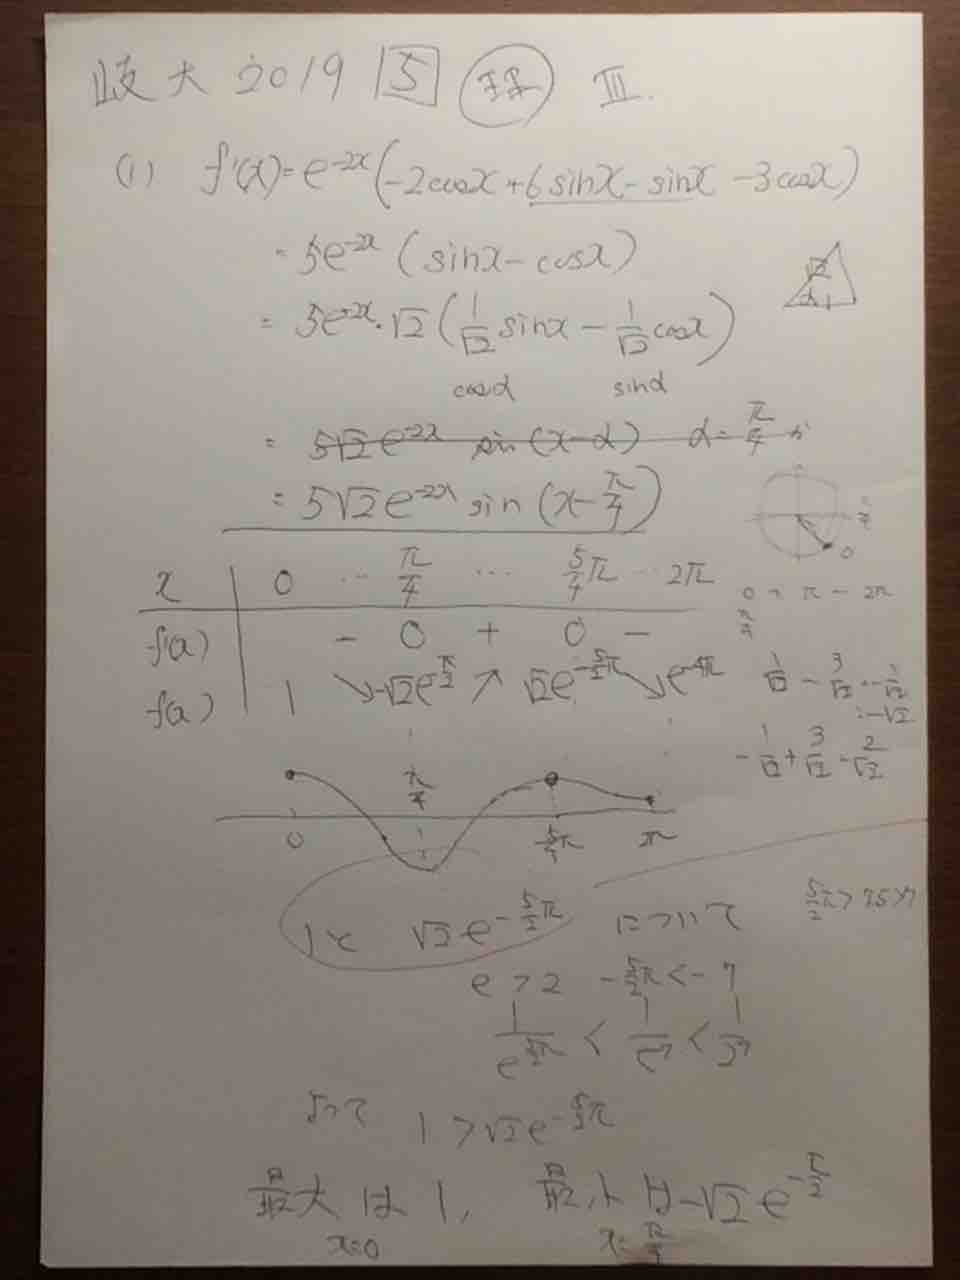 岐大 2019 5 理 Ⅲ.
(1) f'(x)=e^{-2x}(-2cosx+6sinx-sinx-3cosx)
=5e^{-2x}(sinx-cosx)
=5e^{-2x}・√2(1/√2 sinx-1/√2 cosx)
√2 α 1
cosα sinα
=5√2e^{-2x} sin(x-α) α=π/4
=5√2e^{-2x} sin(x-π/4)
x 0 … π/4 … 5/4π … 2π
f'(x) - 0 + 0 -
f(x) 1 ↘ -√2e^{-π/2} ↗ √2e^{-5/2π} ↘ e^{-4π}
0 π - 2π
1/√2 - 3/√2 = -2/√2
=-√2
-1/√2+3/√2=2/√2
π/4
0 5/4π 2π
1と √2e^{-5/2π} について
5/2π>7.5>7
e>2 -5/2π<-7
1/e^{5/2π} < 1/e^7 < 1/2^7
よって 1>√2e^{-5/2π}
最大は1, 最小は-√2e^{-π/2}
x=0 x=π/4